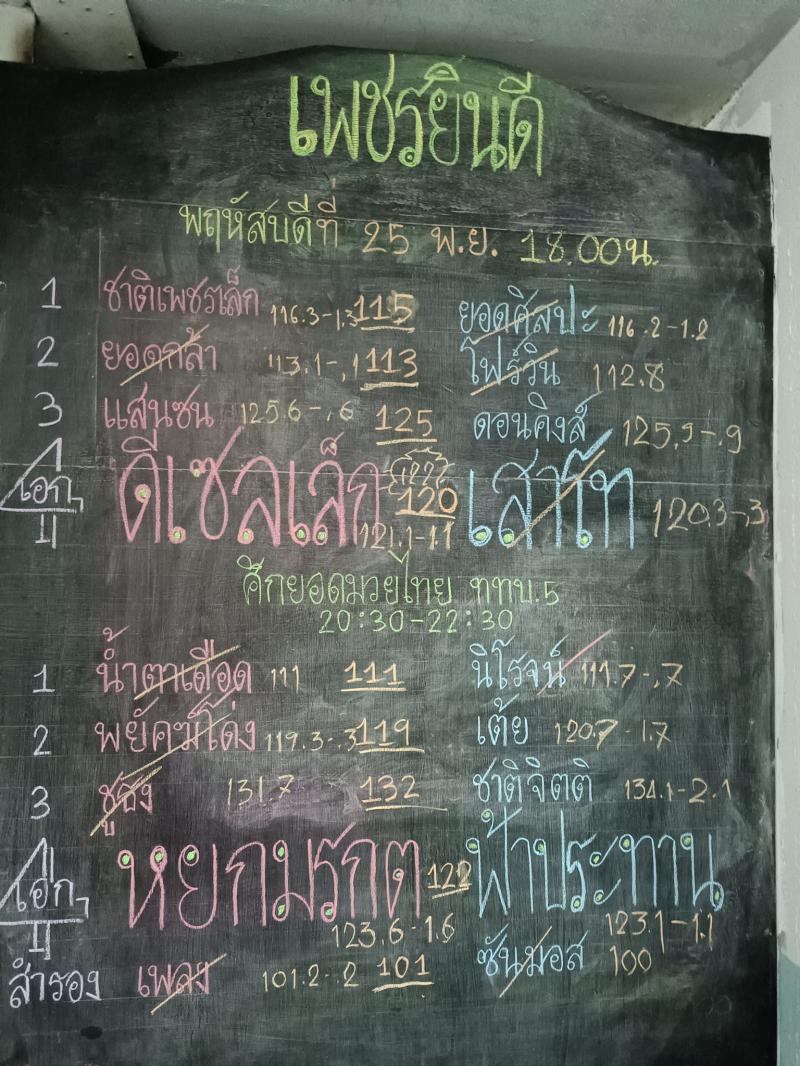 เพชรยินดี
พฤหัสบดีที่ 25 พ.ย. 18.00น.
1 ชาติเพชรเล็ก 116.3-1.3 115 ยอดศิลปะ 116.2-1.2
2 ยอดกล้า 113.1-.1 113 โฟร์วิน 112.8
3 แสนซน 125.6-.6 125 ดอนคิงส์ 125.9-.9
เอก 1 ดีเซลเล็ก 121.1-1.1 120 เสาโท 120.3-.3
ศึกยอดมวยไทย ททบ.5
20:30-22:30
1 น้ำตาเดือด 111 111 นิโรจน์ 111.7-.7
2 พยัคฆ์โด่ง 119.3-.3 119 เต้ย 120.7-1.7
3 ชูธง 131.7 132 ชาติจิตติ 134.1-2.1
เอก หยกมรกต 123.6-1.6 122 ฟ้าประทาน 123.1-1.1
สำรอง เพลง 101.2-.2 101 ซันมอส 100